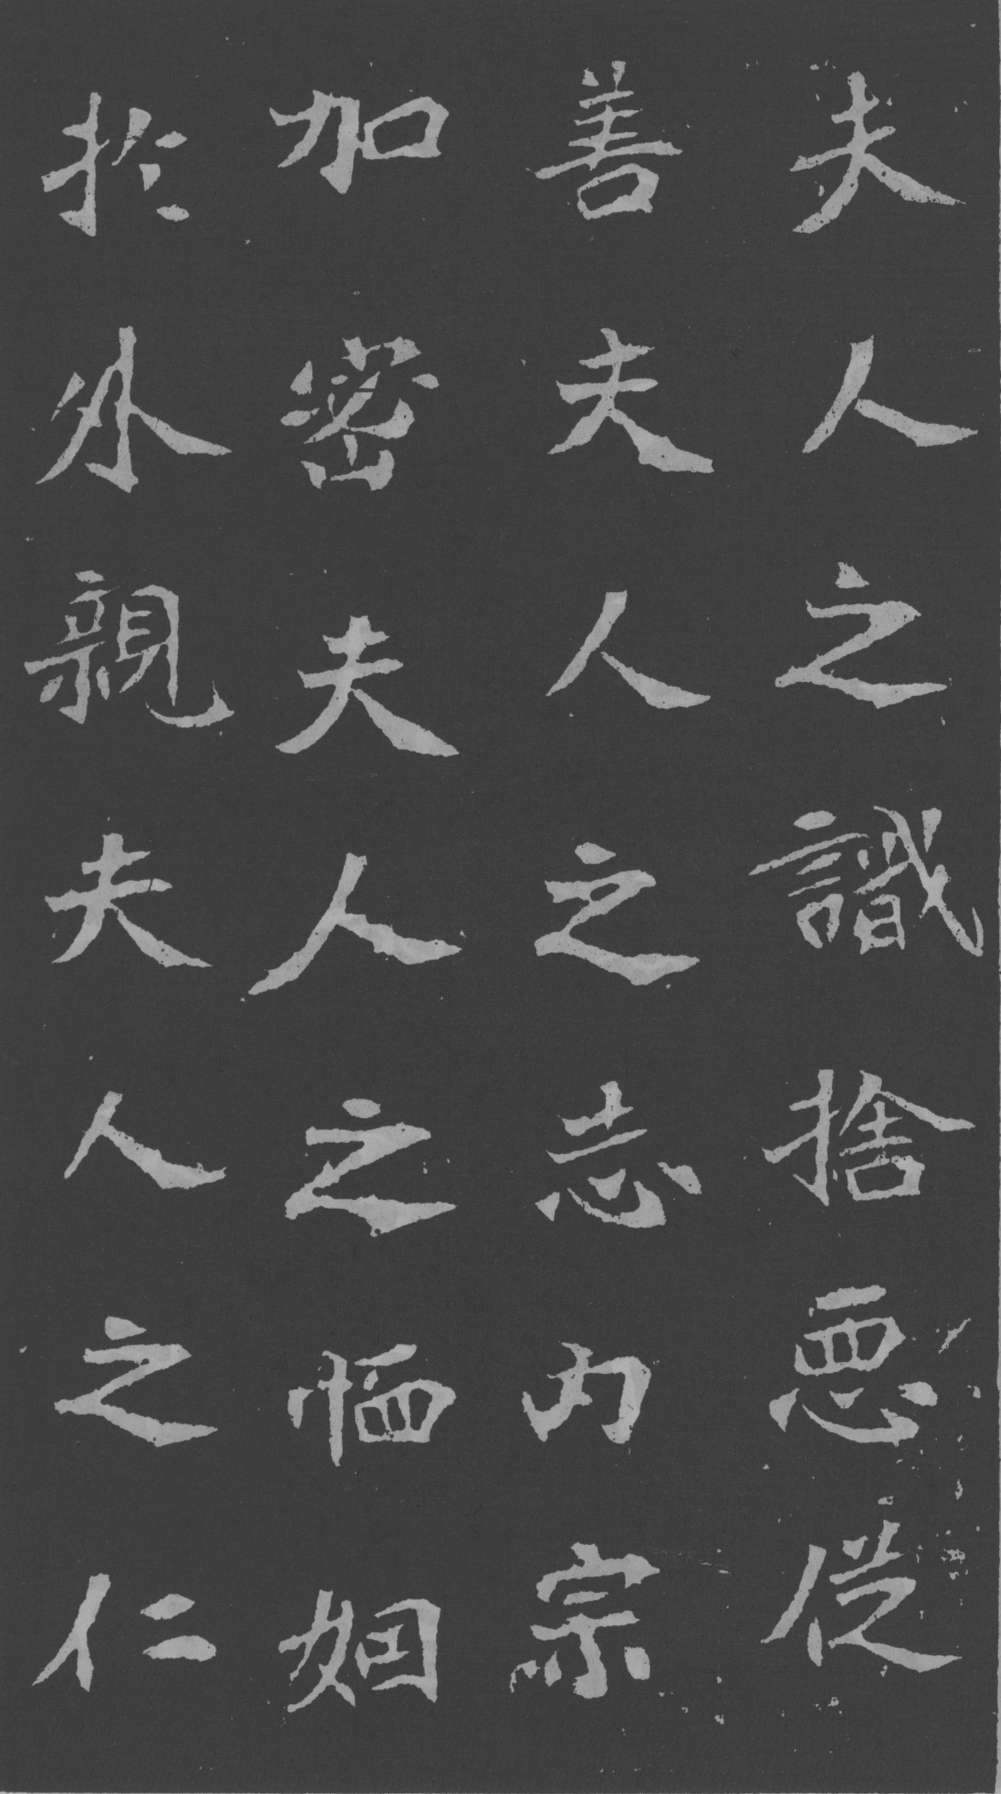 夫人之識捨惡從
善夫人之志內宗
加密夫人之恤姻
於外親夫人之仁